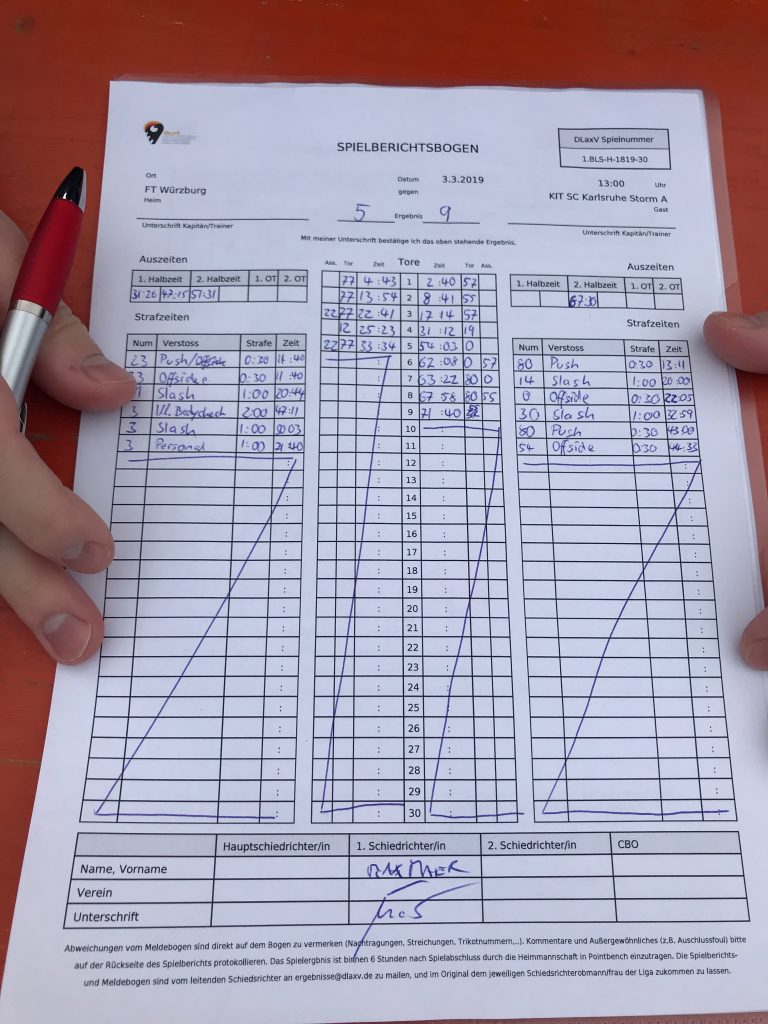 SPIELBERICHTSBOGEN
DLaxV Spielnummer
1.BLS-H-1819-30
Ort
FT Würzburg
Heim
Datum 3.3.2019 13:00 Uhr
gegen
KIT SC Karlsruhe Storm A
Gast
5 Ergebnis 9
Unterschrift Kapitän/Trainer
Unterschrift Kapitän/Trainer
Mit meiner Unterschrift bestätige ich das oben stehende Ergebnis.
Auszeiten
1. Halbzeit 2. Halbzeit 1. OT 2. OT
31:26 47:15 57:31
Strafzeiten
Num Verstoss Strafe Zeit
23 Push/Offside 0:30 11:40
Offside 0:30 11:40
Slash 1:00 20:44
3 Ill. Bodycheck 2:00 47:11
3 Slash 1:00
3 Personal 1:00
Tore
Ass. Tor Zeit Zeit Tor Ass.
77 4:43 1 2:40 57
77 13:54 2 8:41 55
22 77 22:41 3 17:14 57
12 25:23 4 31:12 19
22 77 33:34 5 54:03 0
6 62:08 0 57
7 63:22 80 0
8 67:58 80 55
9 71:40
10
11
12
13
14
15
16
17
18
19
20
21
22
23
24
25
26
27
28
29
30
Auszeiten
1. Halbzeit 2. Halbzeit 1. OT 2. OT
67:30
Strafzeiten
Num Verstoss Strafe Zeit
80 Push 0:30 13:11
14 Slash 1:00 20:00
0 Offside 0:30 22:05
30 Slash 1:00 32:59
80 Push 0:30 43:00
54 Offside 0:30 44:33
Hauptschiedrichter/in 1. Schiedrichter/in 2. Schiedrichter/in CBO
Name, Vorname
Verein
Unterschrift
Abweichungen vom Meldebogen sind direkt auf dem Bogen zu vermerken (Nachtragungen, Streichungen, Trikotnummern,..). Kommentare und Außergewöhnliches (z.B. Auschlussfoul) bitte
auf der Rückseite des Spielberichts protokollieren. Das Spielergbnis ist binnen 6 Stunden nach Spielabschluss durch die Heimmannschaft in Pointbench einzutragen. Die Spielberichts-
und Meldebogen sind vom leitenden Schiedsrichter an ergebnisse@dlaxv.de zu mailen, und im Original dem jeweiligen Schiedsrichterobmann/frau der Liga zukommen zu lassen.